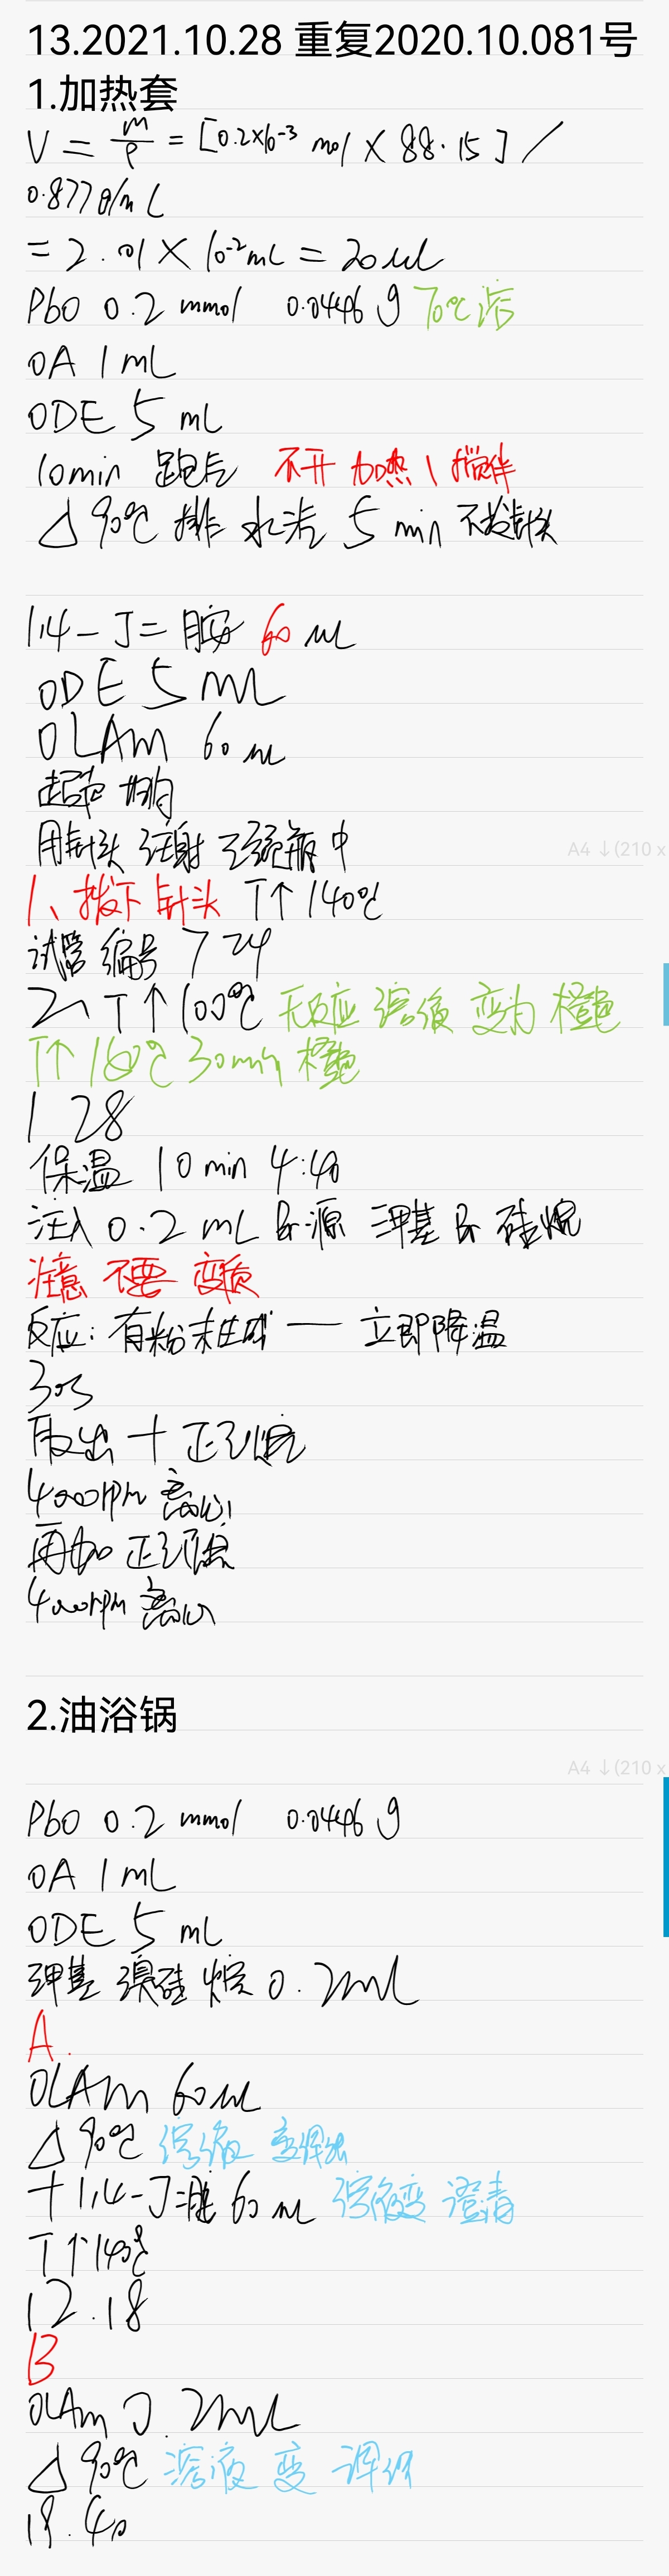 13.2021.10.28 重复2020.10.081号
1.加热套
V = m/ρ = [0.2×10⁻³ mol × 88.15] /
0.877g/mL
= 2.01 × 10⁻² mL = 20 uL
PbO 0.2 mmol 0.0446 g 70℃溶
OA 1 mL
ODE 5 mL
10min 跑气 不开加热\搅拌
△ 90℃ 排水汽 5 min 不拔针头
1,4-丁二胺 60 uL
ODE 5 mL
OLAM 60 uL
超声 均匀
用针头 注射 三颈瓶中
A4 ↓(210 x
1、拔下针头 T↑ 140℃
试管编号 7 24
2、T↑ 100℃ 无反应 溶液 变为 橙色
T↑ 160℃ 30min 橙色
1 28
保温 10 min 4:40
注入 0.2 mL Br源 三甲基Br硅烷
注意 不要 变质
反应: 有粉末生成 — 立即降温
30s
取出 + 正己烷
4000rpm 离心
再加 正己烷
4000rpm 离心
2.油浴锅
A4 ↓(210 x
PbO 0.2 mmol 0.0446 g
OA 1 mL
ODE 5 mL
三甲基 溴硅烷 0.2mL
A.
OLAM 60 uL
△ 90℃ 溶液 变浑浊
+ 1,4-丁二胺 60 uL 溶液变 澄清
T↑140℃
12.18
B
OLAm 0.2mL
△ 90℃ 溶液 变 浑浊
18.40